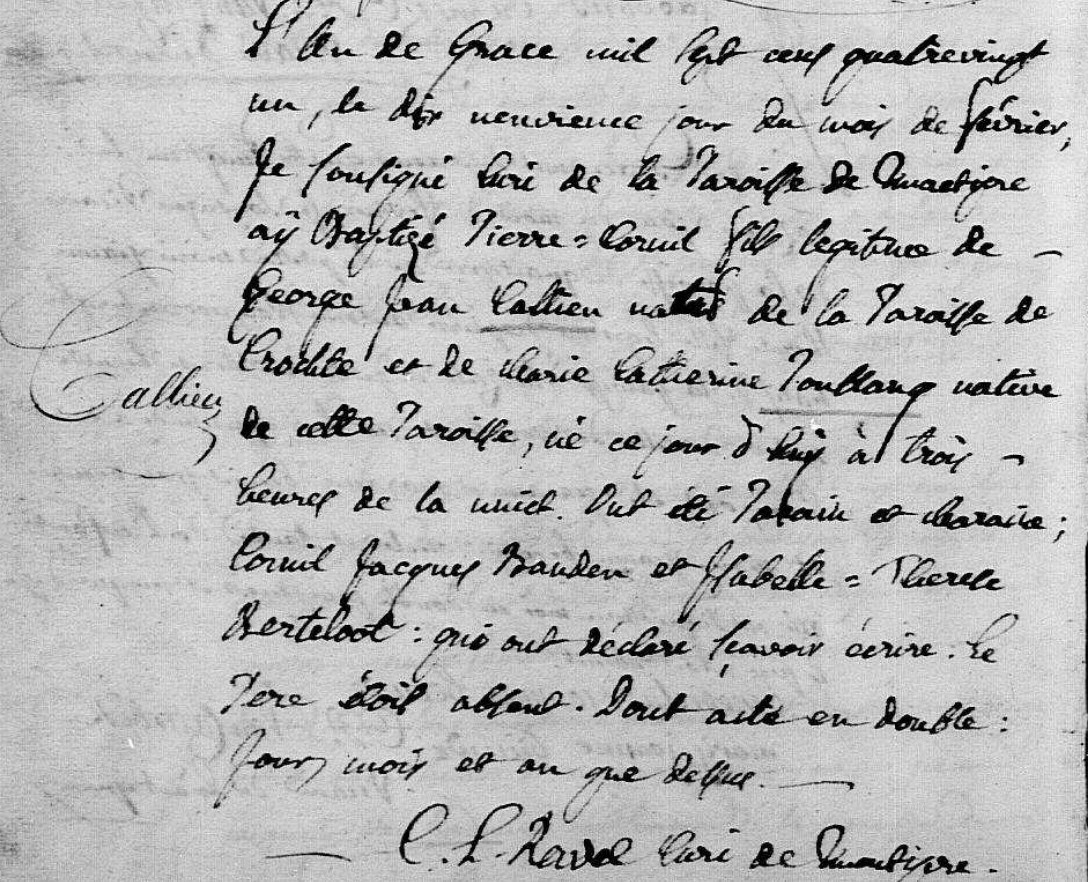 L'An de Grace mil sept cens quatrevingt
un, le dix neuvieme jour du mois de février,
Je sousigné Curé de la Paroisse de
aÿ Baptizé Pierre = Cornil fils legitime de –
George Jean Callieu natif de la Paroisse de
Crochte et de Marie Catherine native
Callieu
de cette Paroisse, né ce jour d'huy à trois –
heures de la nuict. Ont été Parain et Maraine ;
Cornil Jacques Banden et Isabelle = Therese
Berteloot : qui ont déclaré sçavoir écrire. Le
Pere étoit absent. Dont acte en double :
Jour, mois et an que dessus. —
— C. L. Ravel Curé de